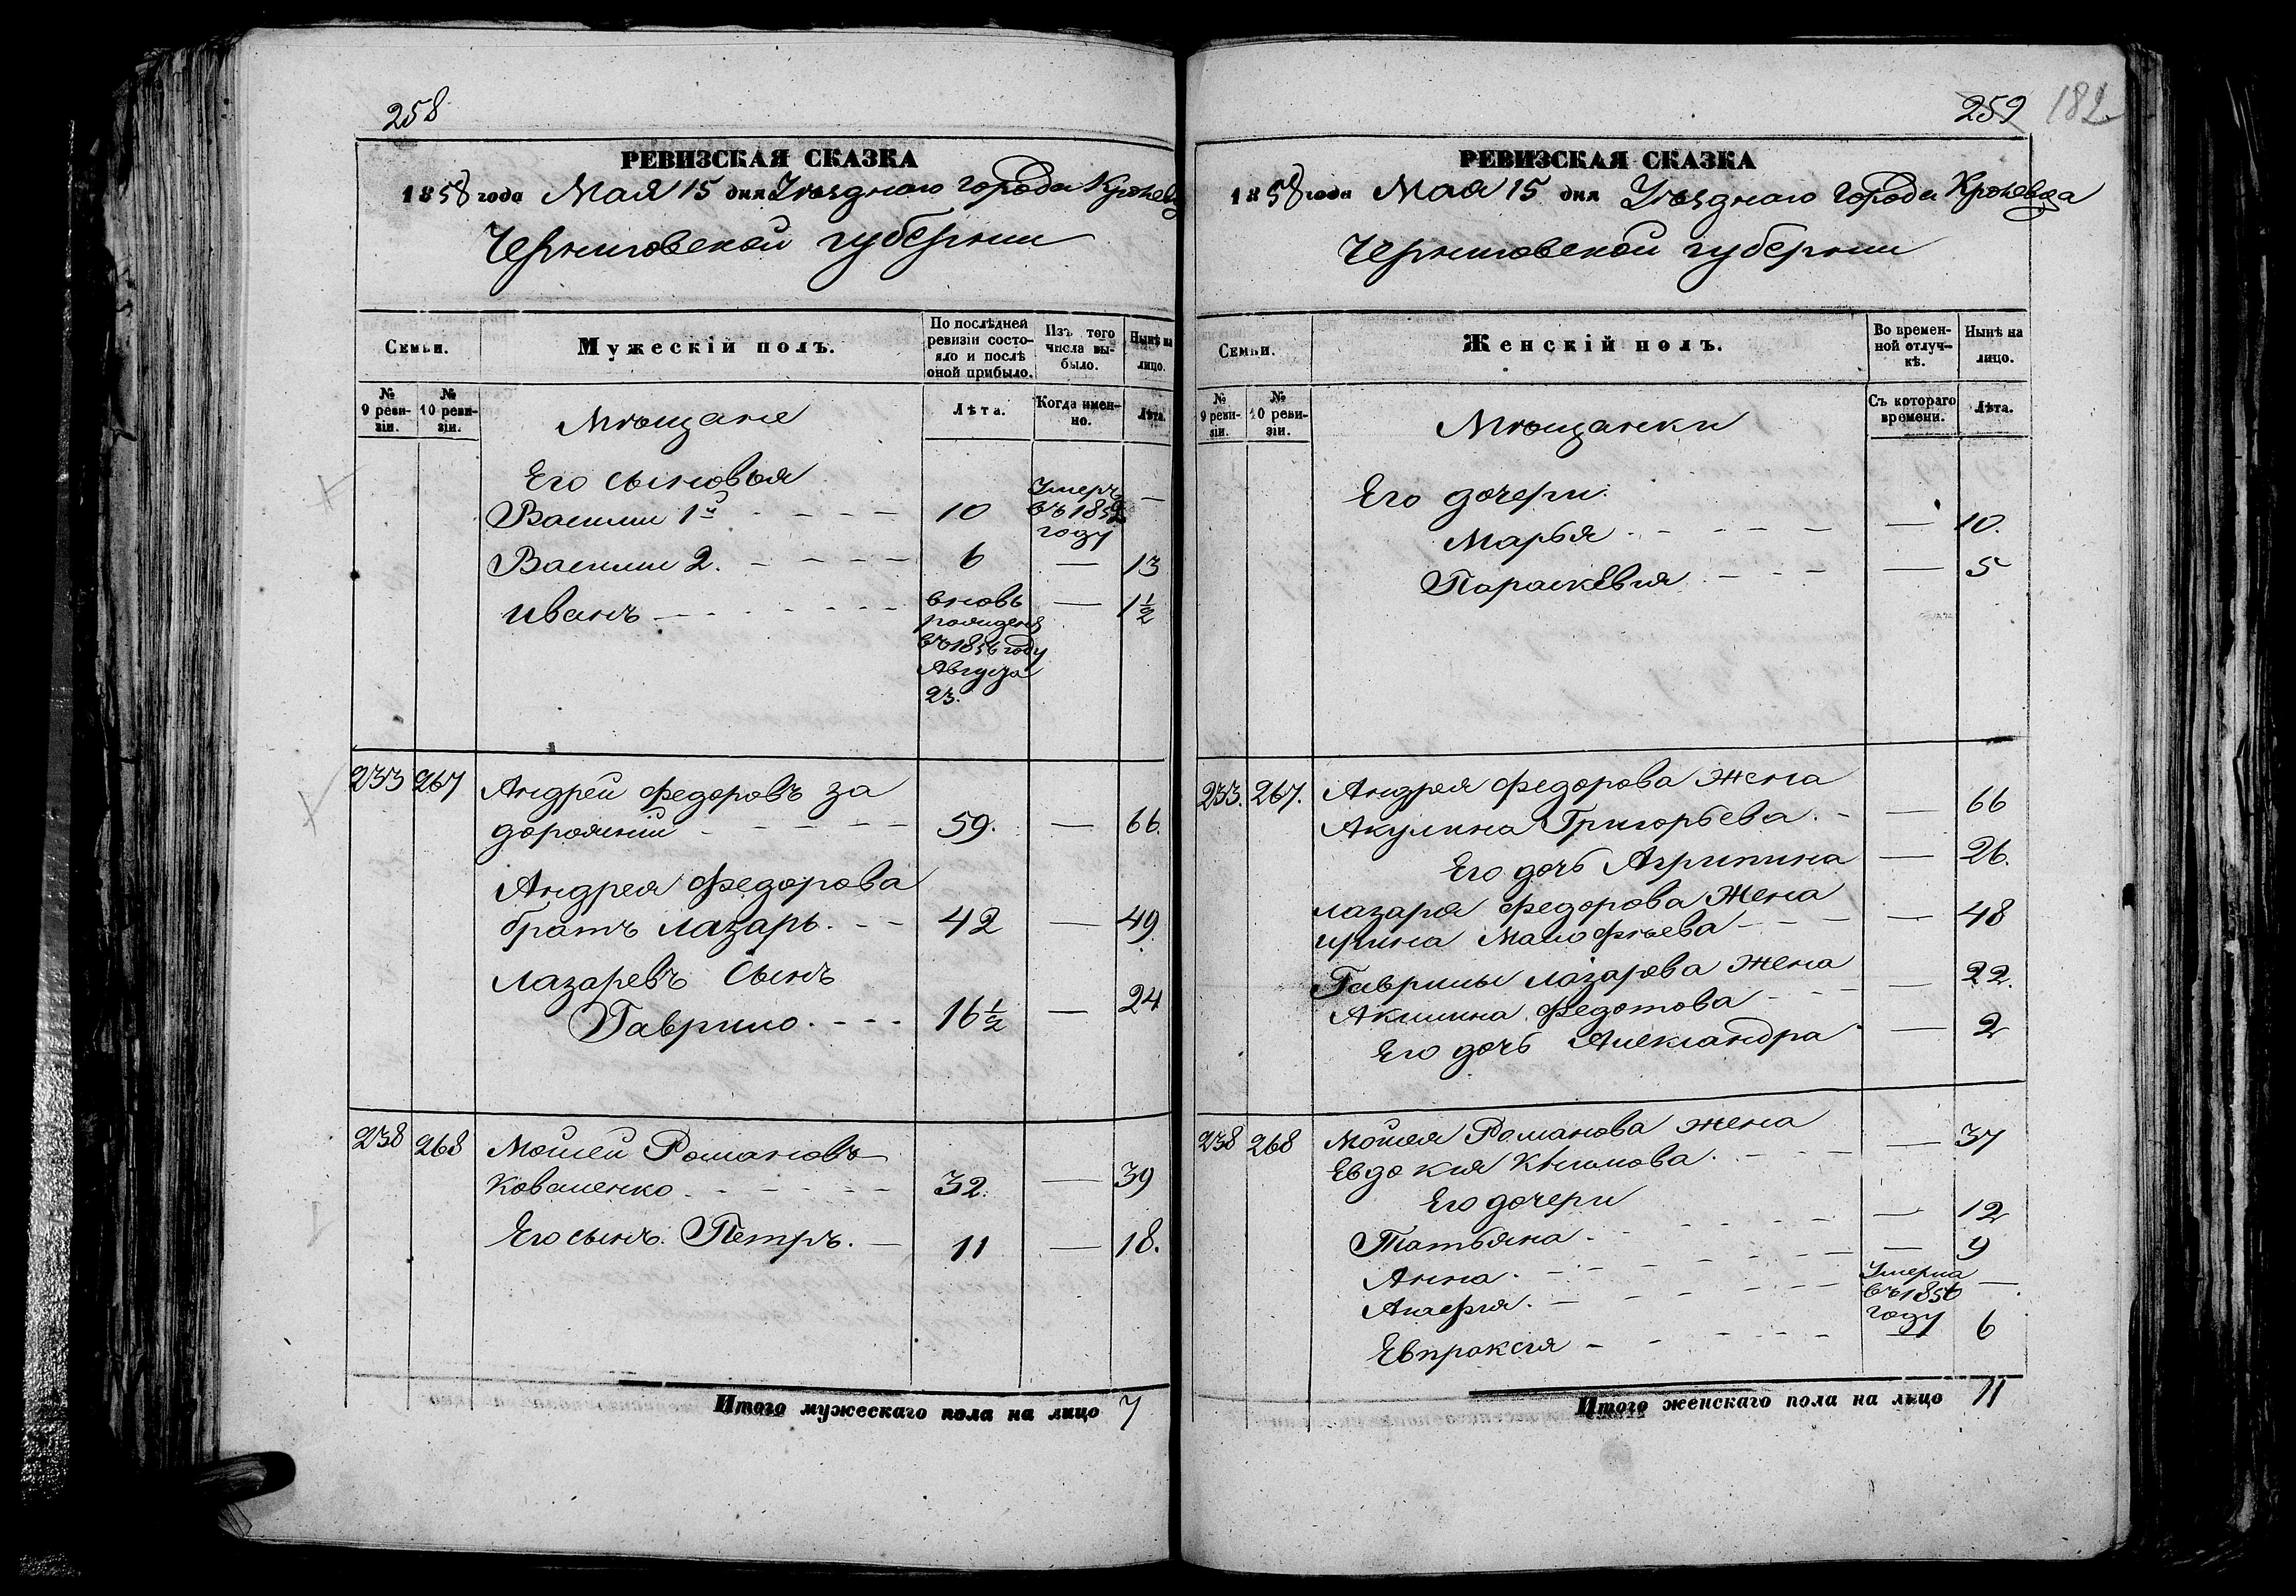 258
РЕВИЗСКАЯ СКАЗКА
1858 года Мая 15 дня Уѣзднаго города Кролевца
Черниговской губернии
Семьи.
Мужескій полъ.
По послѣдней ревизіи состояло и послѣ оной прибыло.
Изъ того числа выбыло.
Нынѣ на лицо.
№ 9 ревизіи.
№ 10 ревизіи.
Мѣщане
Лѣта.
Когда именно.
Лѣта.
Его сыновья
Василий 1й 10 Умеръ въ 1852 году —
Василий 2. 6 — 13
Иванъ вновь рожденъ въ 1856 году Августа 23. — 1 1/2
233 267 Андрей Федоровъ За
дорожний 59. — 66.
Андрея Федорова
братъ Лазарь. 42 — 49.
Лазаревъ Сынъ
Гаврило. 16 1/2 — 24
238 268 Мойсей Романовъ
Коваленко. 32. — 39
Его сынъ. Петръ. 11 — 18.
Итого мужескаго пола на лицо 7
259 182
РЕВИЗСКАЯ СКАЗКА
1858 года Мая 15 дня Уѣзднаго города Кролевца
Черниговской губернии
Семьи.
Женскій полъ.
Во временной отлучкѣ.
Нынѣ на лицо.
№ 9 ревизіи.
№ 10 ревизіи.
Мѣщанки
Съ котораго времени.
Лѣта.
Его дочери.
Марья. — 10.
Параскевия — 5
233. 267. Андрея Федорова жена
Акулина Григорьева. — 66
Его дочь Агрипина — 26.
Лазаря Федорова Жена
Ирина Малофѣева — 48
Гаврилы Лазарева жена
Акилина Федотова — 22.
Его дочь Александра — 2
238 268 Мойсея Романова жена
Евдокия Климова. — 37
Его дочери
Татьяна. — 12
Анна. — 9
Агафия. Умерла въ 1856 году —
Евпраксия — 6
Итого женскаго пола на лицо 11